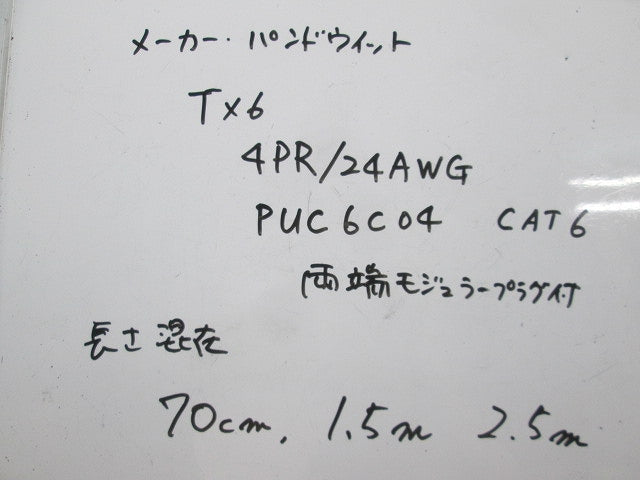 メーカー・パンドウィット
TX6
4PR/24AWG
PUC6C04 CAT6
両端モジュラープラグ付
長さ混在
70cm, 1.5m 2.5m